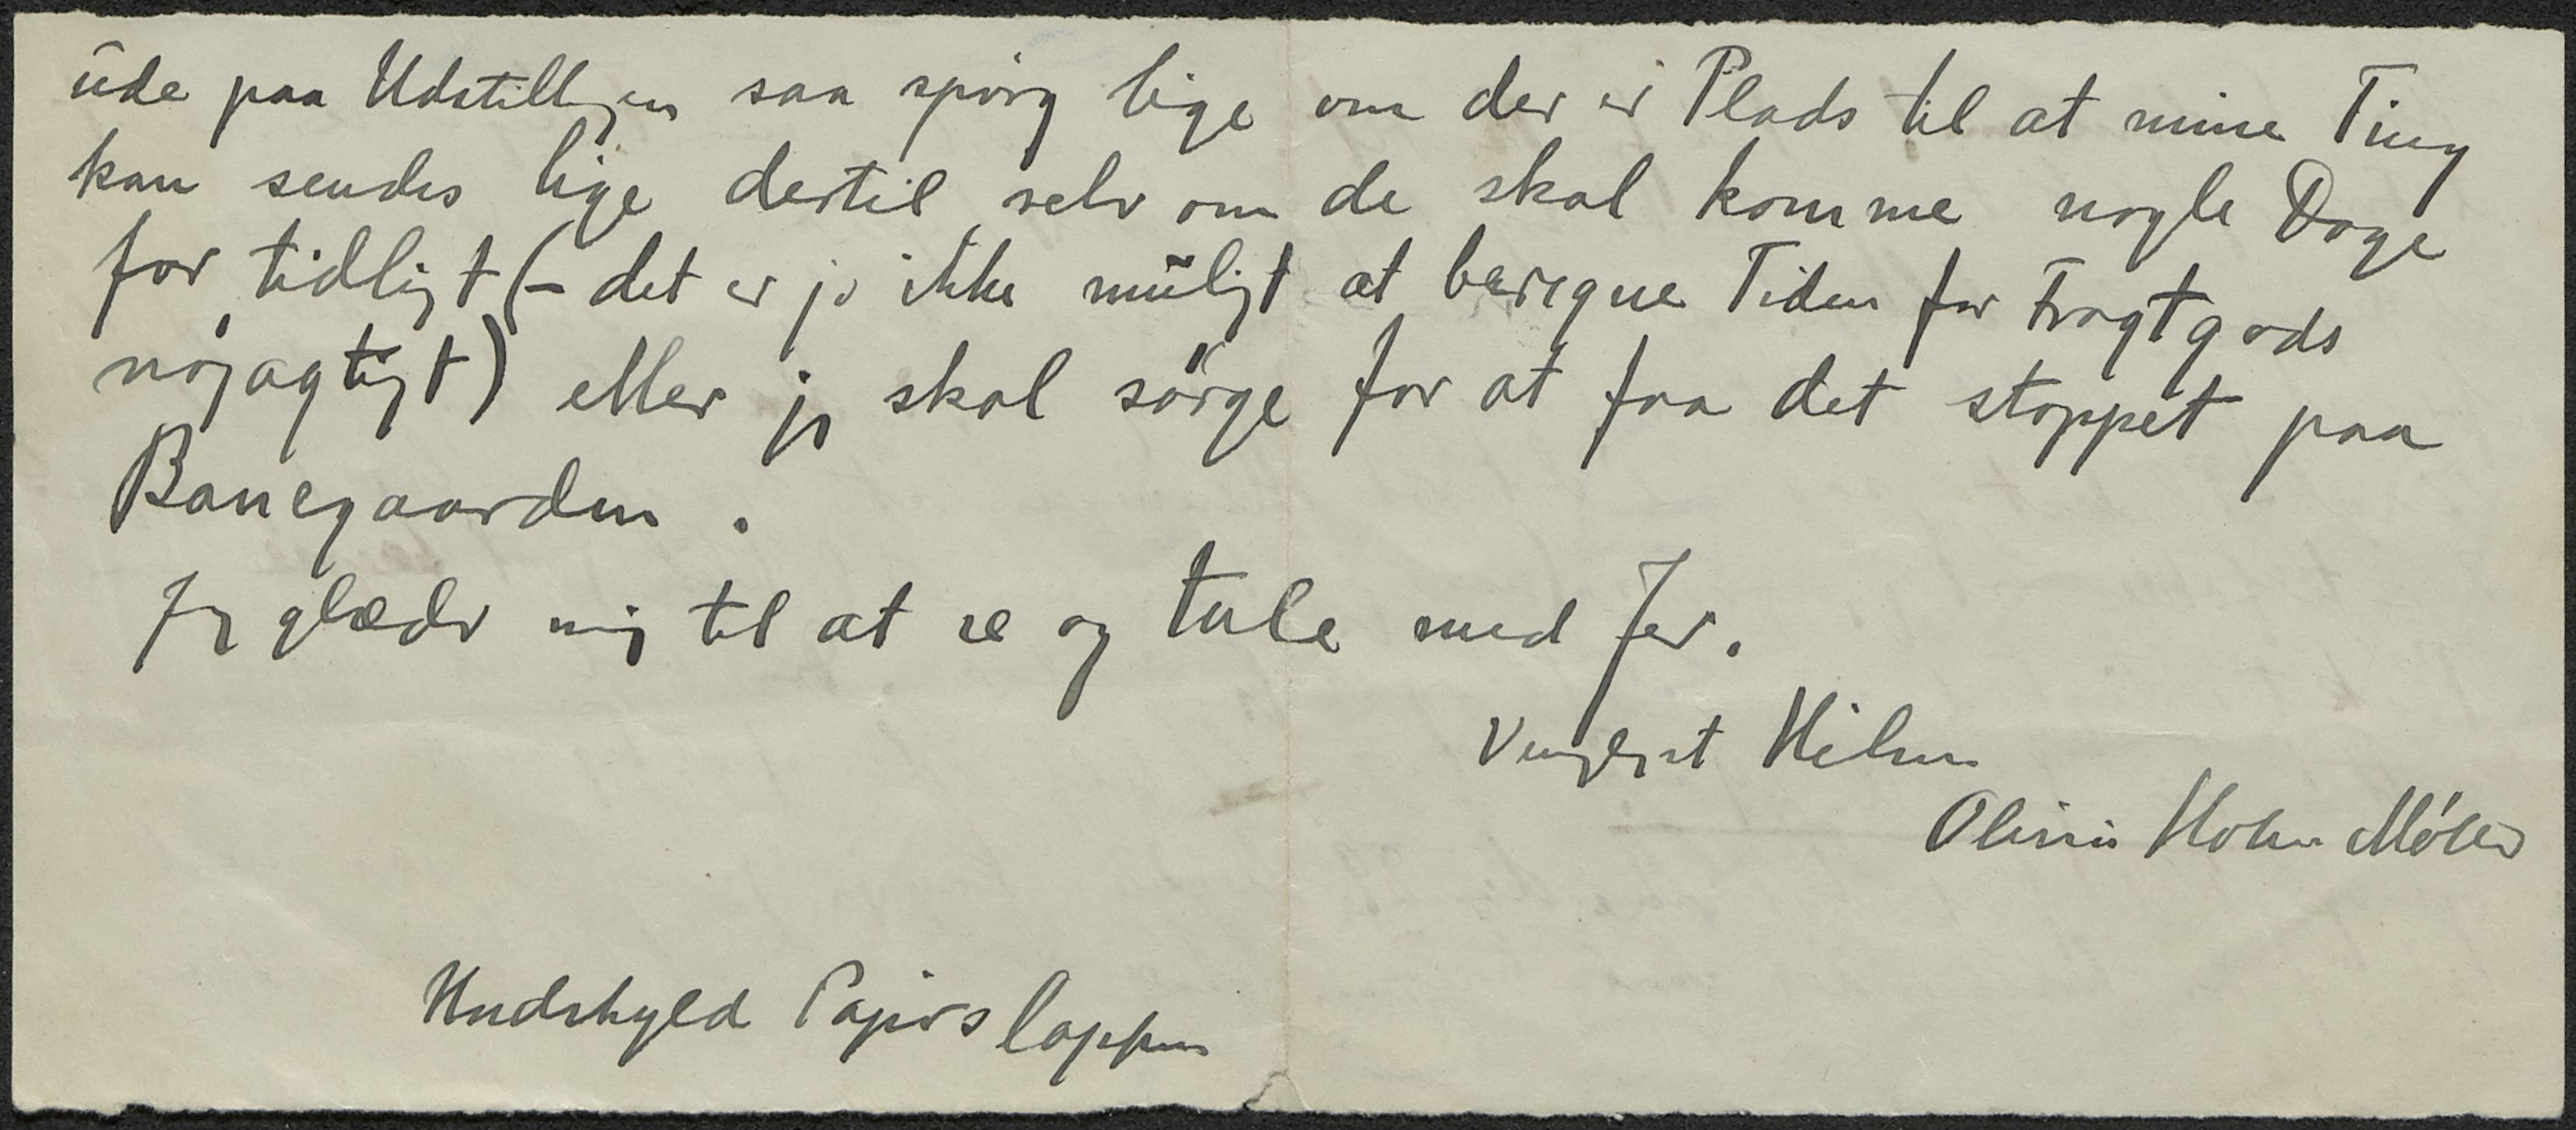 ude paa Udstillingen saa spørg lige om der er Plads til at mine Ting
kan sendes lige dertil selv om de skal komme nogle Dage
for tidligt (– det er jo ikke muligt at beregne Tiden for Fragtgods
nøjagtigt) eller jeg skal sørge for at faa det stoppet paa
Banegaarden.
Jeg glæder mig til at se og tale med Jer.
Venligst Hilsen
Olivia Holm Møller
Undskyld Papirslappen